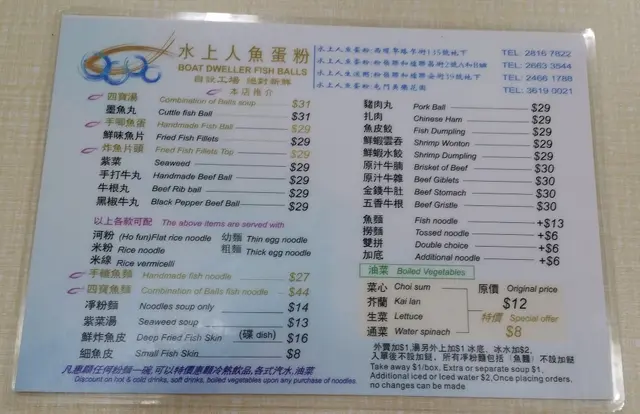 水上人魚蛋粉
BOAT DWELLER FISH BALLS
自設工場 絕對新鮮
TEL: 2816 7822
TEL: 2663 3544
TEL: 2466 1788
TEL: 3619 0021
本店推介
四寶湯 Combination of Balls soup $31
墨魚丸 Cuttle fish Ball $31
手唧魚蛋 Handmade Fish Ball $29
鮮味魚片 Fried Fish Fillets $29
炸魚片頭 Fried Fish Fillets Top $29
紫菜 Seaweed $29
手打牛丸 Handmade Beef Ball $29
牛根丸 Beef Rib ball $29
黑椒牛丸 Black Pepper Beef Ball $29
以上各款可配 The above items are served with
河粉 (Ho fun)Flat rice noodle 幼麵 Thin egg noodle
米粉 Rice noodle 粗麵 Thick egg noodle
米線 Rice vermicelli
手磋魚麵 Handmade fish noodle $27
四寶魚麵 Combination of Balls fish noodle $44
凈粉麵 Noodles soup only $14
紫菜湯 Seaweed soup $13
鮮炸魚皮 Deep Fried Fish Skin (碟 dish) $16
細魚皮 Small Fish Skin $8
凡惠顧任何粉麵一碗,可以特價惠顧冷熱飲品,各式汽水,油菜
Discount on hot & cold drinks, soft drinks, boiled vegetables upon any purchase of noodles
豬肉丸 Pork Ball $29
扎肉 Chinese Ham $29
魚皮餃 Fish Dumpling $29
鮮蝦雲吞 Shrimp Wonton $29
鮮蝦水餃 Shrimp Dumpling $29
原汁牛腩 Brisket of Beef $30
原汁牛雜 Beef Giblets $30
金錢牛肚 Beef Stomach $30
五香牛根 Beef Gristle $30
魚麵 Fish noodle +$13
撈麵 Tossed noodle +$6
雙拼 Double choice +$6
加底 Additional noodle +$6
油菜 Boiled Vegetables
菜心 Choi sum 原價 Original price
芥蘭 Kai lan $12
生菜 Lettuce 特價 Special offer
通菜 Water spinach $8
外賣加$1,湯另外上加$1 冰底、冰水加$2,
入單後不設加餸, 所有凈粉麵包括「魚麵」不設加餸
Take away $1/box, Extra or separate soup $1,
Additional iced or Iced water $2,Once placing orders,
no changes can be made